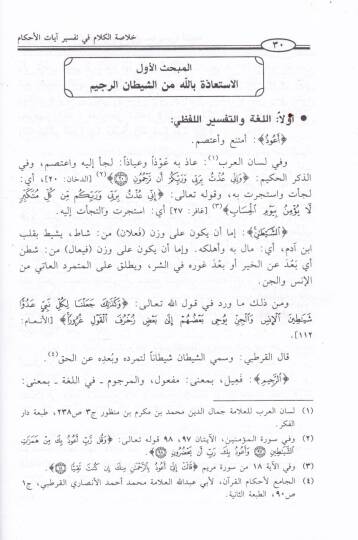 ٣٠
خلاصة الكلام في تفسير آيات الأحكام
المبحث الأول
الاستعاذة بالله من الشيطان الرجيم
● أولاً: اللغة والتفسير اللفظي:
﴿أَعُوذُ﴾: أمتنع وأعتصم.
وفي لسان العرب(١): عاذ به عَوْذاً وعياذاً: لجأ إليه واعتصم، وفي
الذكر الحكيم: ﴿وَإِنِّي عُذْتُ بِرَبِّي وَرَبِّكُمْ أَن تَرْجُمُونِ ۝٢٠﴾(٢) [الدخان: ٢٠]، أي:
لجأت واستجرت به، وقوله تعالى: ﴿إِنِّي عُذْتُ بِرَبِّي وَرَبِّكُم مِّن كُلِّ مُتَكَبِّرٍ
لَّا يُؤْمِنُ بِيَوْمِ الْحِسَابِ﴾(٣) [غافر: ٢٧] أي: استجرت والتجأت إليه.
﴿الشَّيْطَٰنِ﴾: إما أن يكون على وزن (فعلان) من: شاط، يشيط بقلب
ابن آدم، أي: مال به وأهلكه. وإما أن يكون على وزن (فيعال) من: شطن
أي بَعُدَ عن الخير أو بعُد غوره في الشر، ويطلق على المتمرد العاتي من
الإنس والجن.
ومن ذلك ما ورد في قول الله تعالى: ﴿وَكَذَٰلِكَ جَعَلْنَا لِكُلِّ نَبِيٍّ عَدُوًّا
شَيَٰطِينَ الْإِنسِ وَالْجِنِّ يُوحِي بَعْضُهُمْ إِلَىٰ بَعْضٍ زُخْرُفَ الْقَوْلِ غُرُورًا﴾ [الأنعام:
١١٢].
قال القرطبي: وسمي الشيطان شيطاناً لتمرده وبُعدِه عن الحق(٤).
﴿الرَّجِيمِ﴾: فَعِيل، بمعنى: مفعول، والمرجوم - في اللغة - بمعنى:
(١) لسان العرب للعلامة جمال الدين محمد بن مكرم بن منظور ج٣ ص٢٣٨، طبعة دار
الفكر.
(٢) وفي سورة المؤمنين، الآيتان ٩٧، ٩٨ قوله تعالى: ﴿وَقُل رَّبِّ أَعُوذُ بِكَ مِنْ هَمَزَٰتِ
الشَّيَٰطِينِ ۝٩٧ وَأَعُوذُ بِكَ رَبِّ أَن يَحْضُرُونِ ۝٩٨﴾.
(٣) وفي الآية ١٨ من سورة مريم ﴿قَالَتْ إِنِّي أَعُوذُ بِالرَّحْمَٰنِ مِنكَ إِن كُنتَ تَقِيًّا ۝١٨﴾.
(٤) الجامع لأحكام القرآن، لأبي عبدالله العلامة محمد أحمد الأنصاري القرطبي، ج١
ص٩٠، الطبعة الثانية.